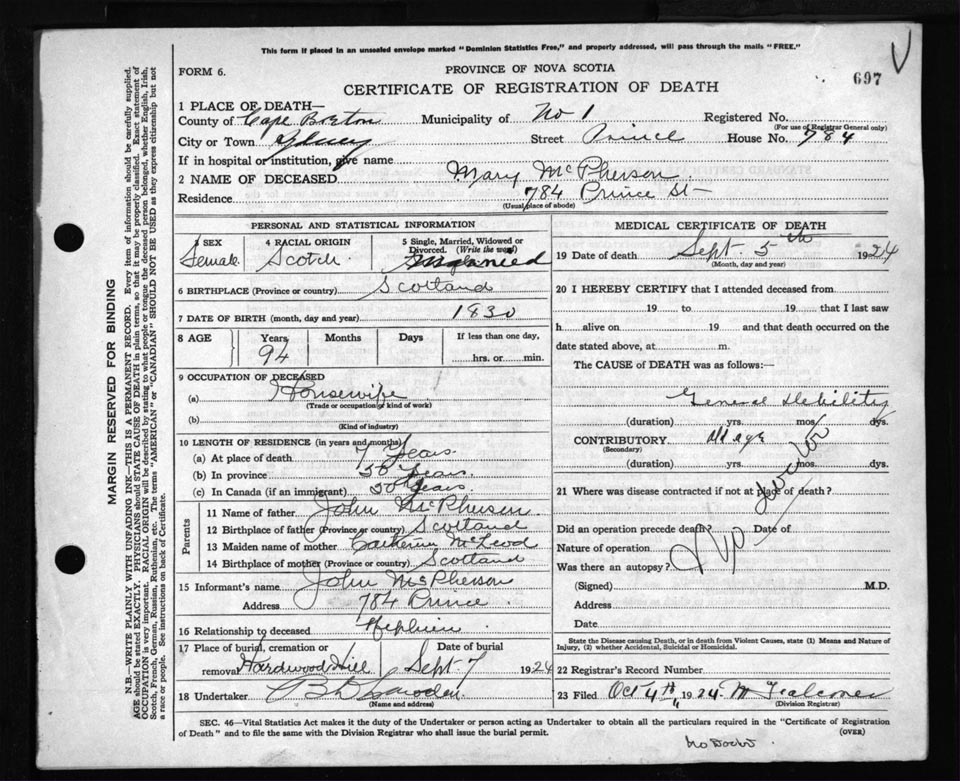 This form if placed in an unsealed envelope marked "Dominion Statistics Free," and properly addressed, will pass through the mails "FREE."
FORM 6.
PROVINCE OF NOVA SCOTIA
697
CERTIFICATE OF REGISTRATION OF DEATH
1 PLACE OF DEATH—
County of Cape Breton Municipality of No 1 Registered No.
(For use of Registrar General only)
City or Town Sydney Street Prince House No. 784
If in hospital or institution, give name
2 NAME OF DECEASED Mary McPherson
Residence 784 Prince St
(Usual place of abode)
PERSONAL AND STATISTICAL INFORMATION
3 SEX
Female
4 RACIAL ORIGIN
Scotch
5 Single, Married, Widowed or Divorced. (Write the word)
6 BIRTHPLACE (Province or country) Scotland
7 DATE OF BIRTH (month, day and year) 1830
8 AGE Years Months Days If less than one day,
94 hrs. or min.
9 OCCUPATION OF DECEASED
(a) Housewife
(Trade or occupation or kind of work)
(b)
(Kind of industry)
10 LENGTH OF RESIDENCE (in years and months)
(a) At place of death 7 Years
(b) In province 50 Years
(c) In Canada (if an immigrant) 50 Years
Parents
11 Name of father John McPherson
12 Birthplace of father (Province or country) Scotland
13 Maiden name of mother Catherine McLeod
14 Birthplace of mother (Province or country) Scotland
15 Informant's name John McPherson
Address 784 Prince
16 Relationship to deceased Nephew
17 Place of burial, cremation or removal Hardwood Hill
Date of burial Sept. 7 1924
18 Undertaker
(Name and address)
MEDICAL CERTIFICATE OF DEATH
19 Date of death Sept 5th 1924
(Month, day and year)
20 I HEREBY CERTIFY that I attended deceased from
19 to 19 that I last saw
h alive on 19 and that death occurred on the
date stated above, at m.
The CAUSE of DEATH was as follows:—
General Debility
(duration) yrs. mos. dys.
CONTRIBUTORY Old age
(Secondary)
(duration) yrs. mos. dys.
21 Where was disease contracted if not at place of death?
Did an operation precede death? Date of
Nature of operation
Was there an autopsy?
No Doctor
(Signed) M.D.
Address
Date
State the Disease causing Death, or in death from Violent Causes, state (1) Means and Nature of Injury, (2) whether Accidental, Suicidal or Homicidal.
22 Registrar's Record Number
23 Filed Oct 4th, 1924
(Division Registrar)
SEC. 46—Vital Statistics Act makes it the duty of the Undertaker or person acting as Undertaker to obtain all the particulars required in the "Certificate of Registration
of Death" and to file the same with the Division Registrar who shall issue the burial permit.
(OVER)
MARGIN RESERVED FOR BINDING
N.B.—WRITE PLAINLY WITH UNFADING INK—THIS IS A PERMANENT RECORD. Every item of information should be carefully supplied.
AGE should be stated EXACTLY. PHYSICIANS should STATE CAUSE OF DEATH in plain terms, so that it may be properly classified. Exact statement of
OCCUPATION is very important. RACIAL ORIGIN will be described by stating to what people or tongue the deceased person belonged, whether English, Irish,
Scotch, French, German, Russian, Ruthenian, etc. The terms "AMERICAN" or "CANADIAN" SHOULD NOT BE USED as they express citizenship but not
a race or people. See instructions on back of Certificate.